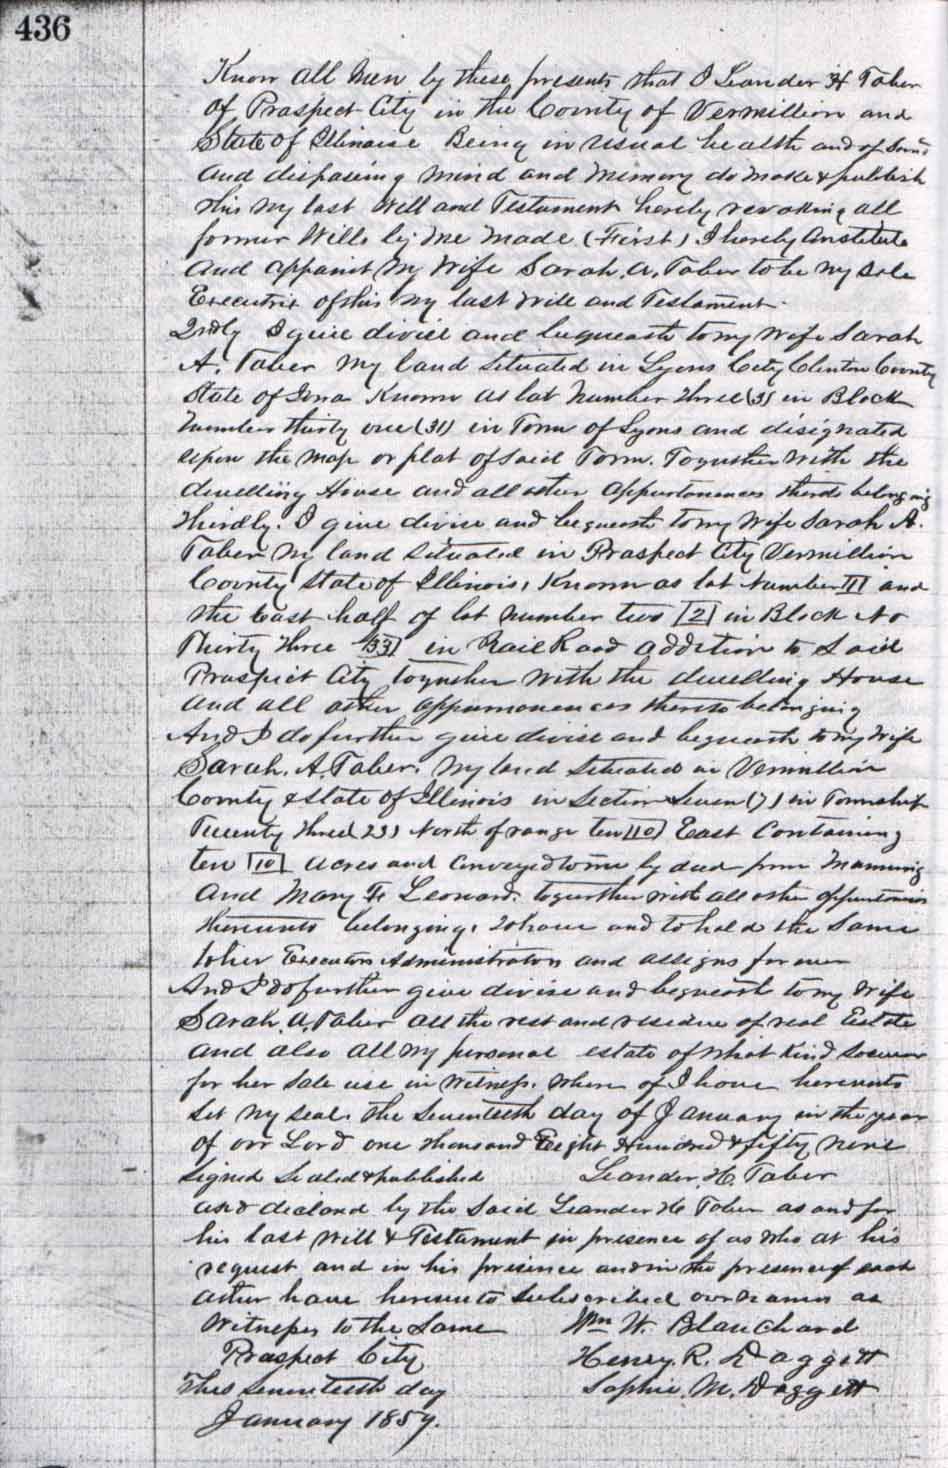 436
Know all Men by these presents that I Leander H Taber
of Prospect City in the County of Vermillion and
State of Illinoise Being in usual health and of Sound
and disposing mind and memory do make & publish
this my last Will and Testament hereby revoking all
former Wills by me made (First) I hereby Constitute
and appoint my Wife Sarah. A. Taber to be my sole
Executrix of this my last Will and Testament.
2ndly I give divise and bequeath to my Wife Sarah
A. Taber My land Situated in Lyons City Clinton County
State of Iowa Known as lot Number three (3) in Block
Number thirty one (31) in Town of Lyons and designated
upon the map or plat of said Town. Together with the
dwelling House and all other appurtenances thereto belonging
Thirdly. I give divise and bequeath to my Wife Sarah A.
Taber my land Situated in Prospect City Vermillion
County State of Illinois, Known as lot Number 11 and
the East half of lot number two 2 in Block No
Thirty three 33 in Rail Road addition to Said
Prospect City together with the dwelling House
and all other appurtenances thereto belonging
And I do further give divise and bequeath to my Wife
Sarah. A. Taber. My land Situated in Vermillion
County & State of Illinois in Section Seven (7) in Township
Twenty three (23) North of range ten 10 East Containing
ten 10 acres and Conveyed to me by deed from Manning
and Mary Leonard. together with all other appurtenances
thereunto belonging, to have and to hold the Same
to her Executors Administrators and assigns forever
And I do further give divise and bequeath to my Wife
Sarah. A. Taber all the rest and residue of real Estate
and also all my personal estate of What Kind Soever
for her Sole use in Witness. Where of I have hereunto
Set my seal. the Seventeeth day of January in the year
of our Lord one thousand Eight Hundred & fifty nine
Signed Sealed & published Leander. H. Taber
and declared by the Said Leander H Taber as and for
his last Will & Testament in presence of us who at his
request and in his presence and in the presence of each
other have hereunto subscribed our names as
Witness to the Same Wm W. Blanchard
Prospect City Henry. R. Daggett
This Seventeeth day Sophie. M. Daggett
January 1859.